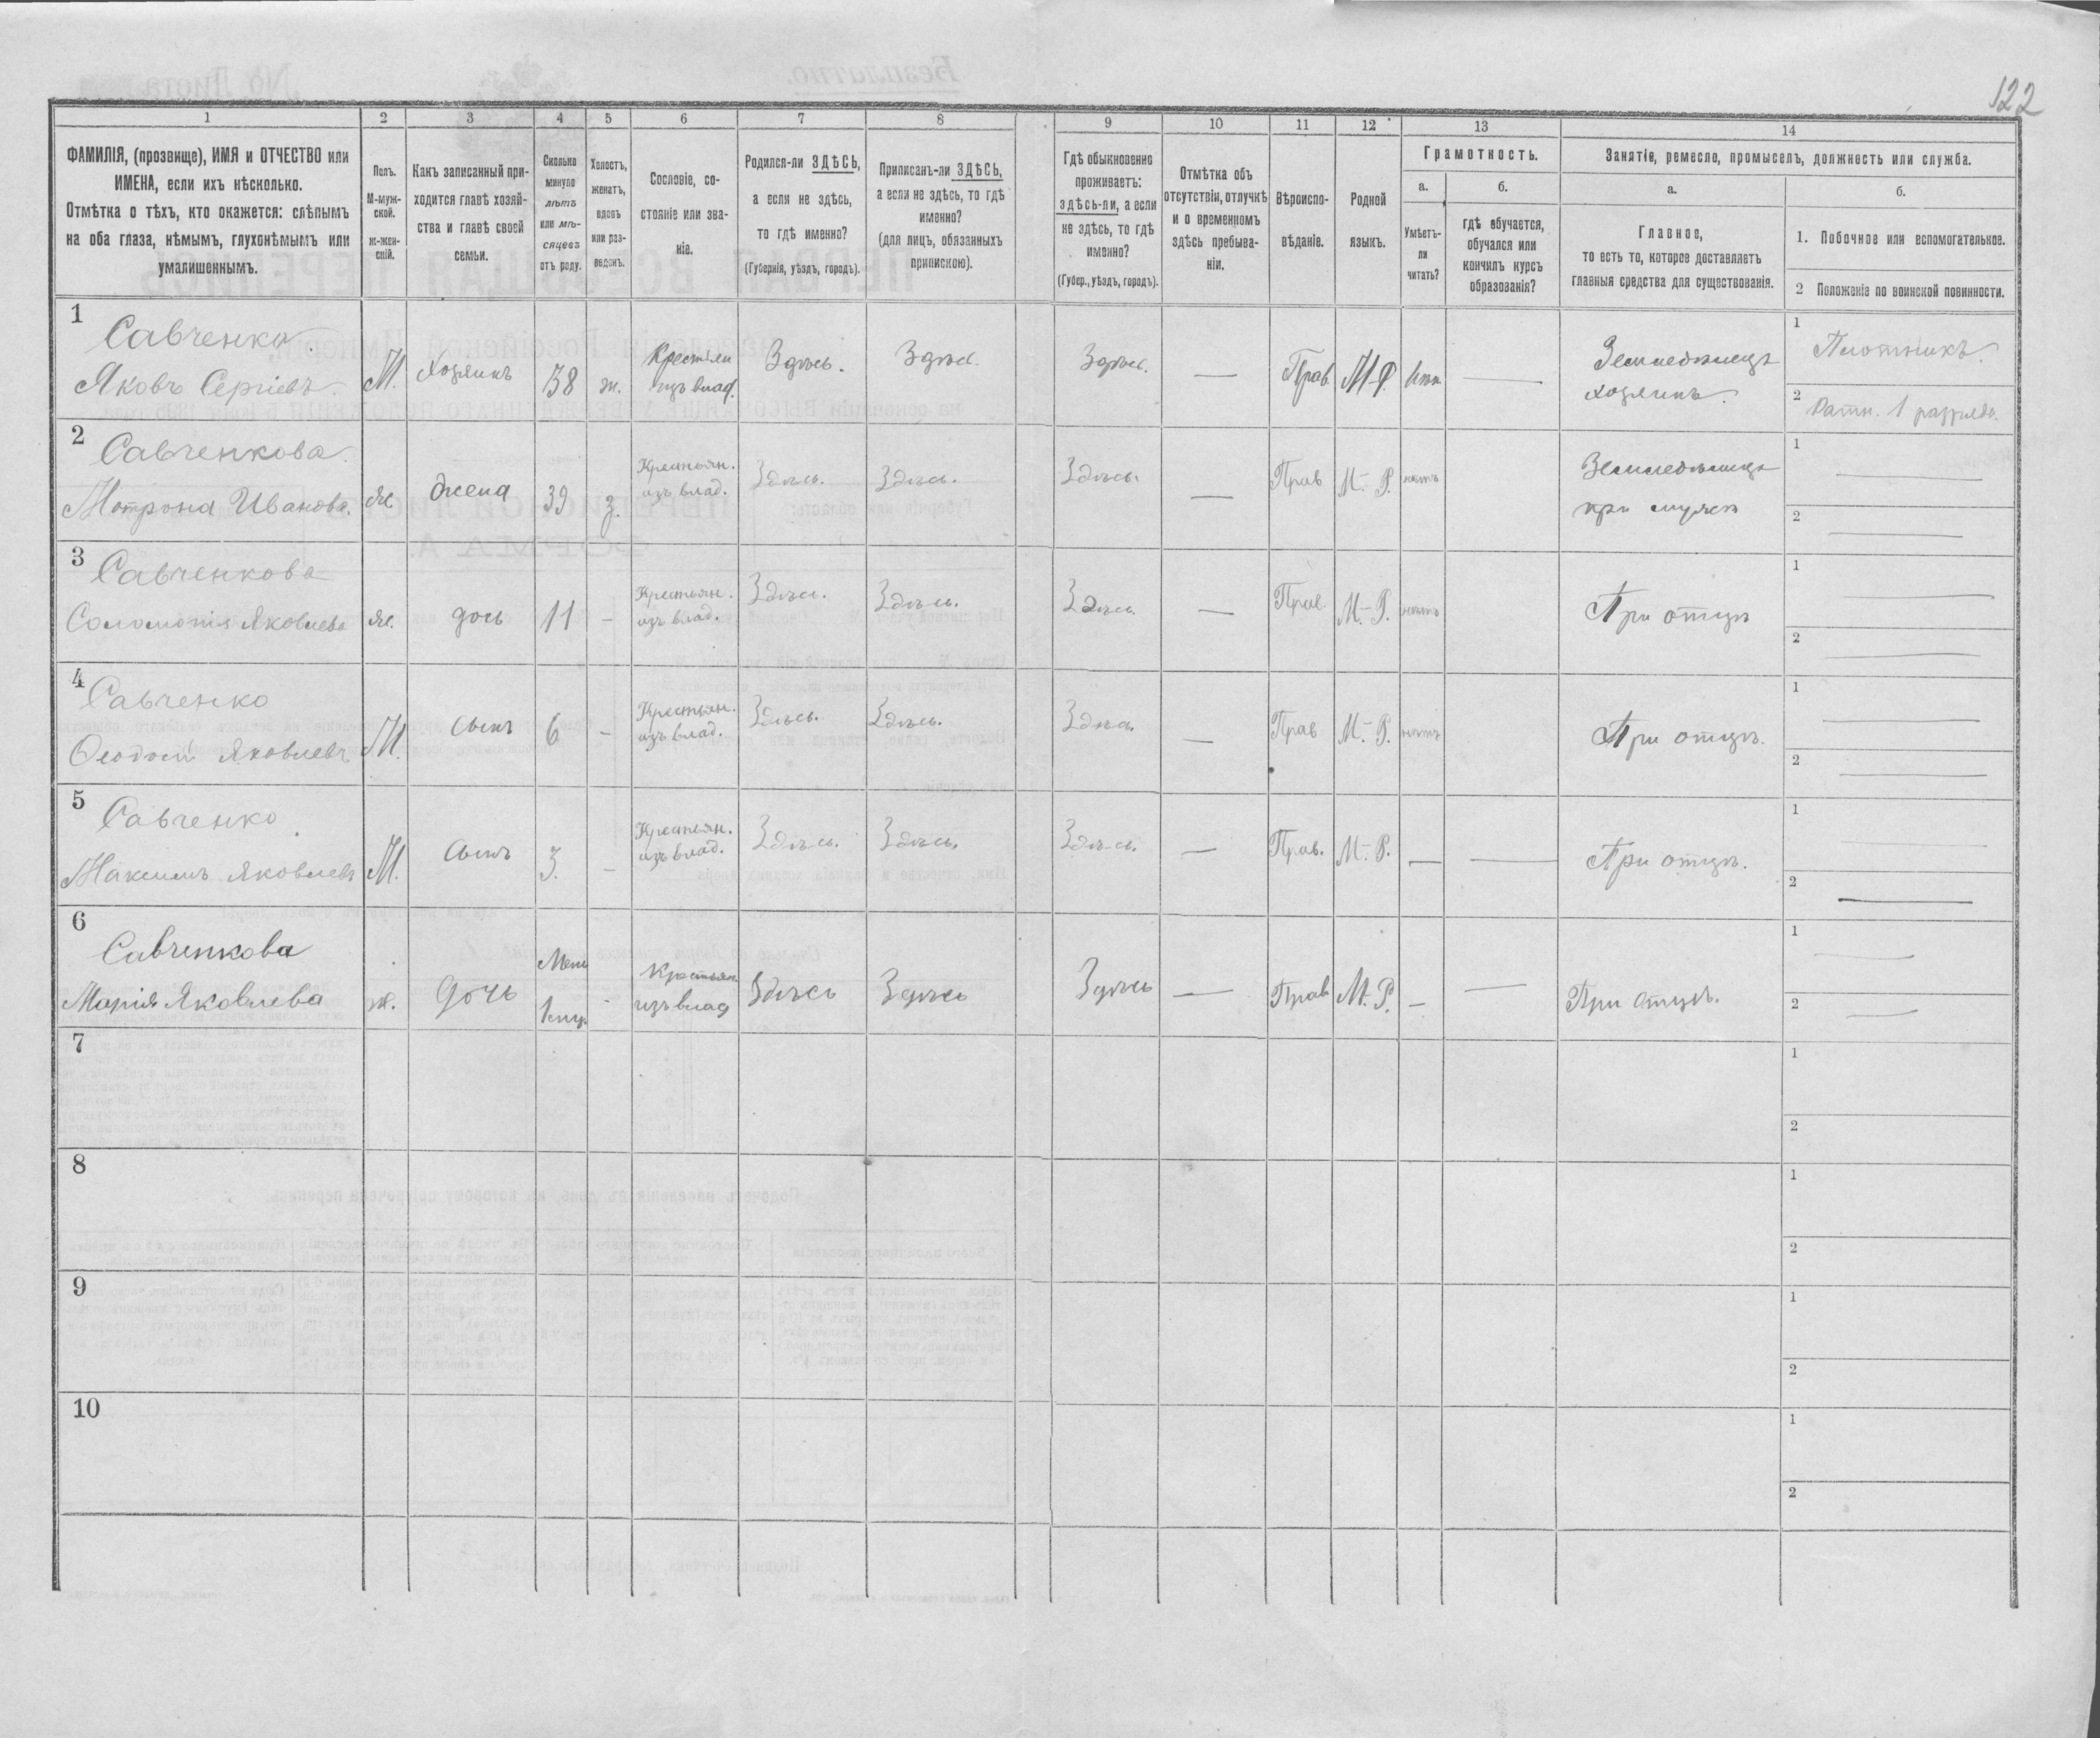 122
1 2 3 4 5 6 7 8 9 10 11 12 13 14
ФАМИЛІЯ, (прозвище), ИМЯ и ОТЧЕСТВО или
ИМЕНА, если ихъ нѣсколько.
Отмѣтка о тѣхъ, кто окажется: слѣпымъ
на оба глаза, нѣмымъ, глухонѣмымъ или
умалишеннымъ.
Полъ.
М-муж-
ской.
ж-жен-
скій.
Какъ записанный при-
ходится главѣ хозяй-
ства и главѣ своей
семьи.
Сколько
минуло
лѣтъ
или мѣ-
сяцевъ
отъ роду.
Холостъ,
женатъ,
вдовъ
или раз-
веденъ.
Сословіе, со-
стояніе или зва-
ніе.
Родился-ли ЗДѢСЬ,
а если не здѣсь,
то гдѣ именно?
(Губернія, уѣздъ, городъ).
Приписанъ-ли ЗДѢСЬ,
а если не здѣсь, то гдѣ
именно?
(для лицъ, обязанныхъ
припискою).
Гдѣ обыкновенно
проживаетъ:
здѣсь-ли, а если
не здѣсь, то гдѣ
именно?
(Губер., уѣздъ, городъ).
Отмѣтка объ
отсутствіи, отлучкѣ
и о временномъ
здѣсь пребыва-
ніи.
Вѣроиспо-
вѣданіе.
Родной
языкъ.
Грамотность.
а.
Умѣетъ-
ли
читать?
б.
гдѣ обучается,
обучался или
кончилъ курсъ
образованія?
Занятіе, ремесло, промыселъ, должность или служба.
а.
Главное,
то есть то, которое доставляетъ
главныя средства для существованія.
б.
1. Побочное или вспомогательное.
2 Положеніе по воинской повинности.
1
Савченко
Яковъ Сергіевъ
М.
Хозяинъ
38
ж.
Крестьян
изъ влад.
Здѣсь.
Здѣсь.
Здѣсь.
—
Прав.
М-Р.
—
Земледѣлецъ
хозяинъ.
1 Плотникъ.
2 Ратн. 1 разряда.
2
Савченкова
Мотрона Иванова.
Ж
жена
39
з.
Крестьян.
изъ влад.
Здѣсь.
Здѣсь.
Здѣсь.
—
Прав
М.-Р.
нѣтъ
Земледѣлица
при мужѣ
1 —
2 —
3
Савченкова
Соломонія Яковлева
Ж.
дочь
11
–
Крестьян.
изъ влад.
Здѣсь.
Здѣсь.
Здѣсь
—
Прав.
М.-Р.
нѣтъ
При отцѣ
1 —
2 —
4
Савченко
Ѳеодосій Яковлевъ
М.
Сынъ
6
–
Крестьян.
изъ влад.
Здѣсь.
Здѣсь.
Здѣсь.
—
Прав
М.-Р.
нѣтъ
При отцѣ.
1 —
2 —
5
Савченко
Максимъ Яковлевъ
М.
Сынъ
3.
–
Крестьян.
изъ влад.
Здѣсь.
Здѣсь.
Здѣсь.
—
Прав.
М.-Р.
—
—
При отцѣ.
1 —
2 —
6
Савченкова
Марія Яковлева
ж.
Дочь
–
Крестьян
изъ влад
Здѣсь
Здѣсь
Здѣсь
—
Прав
М.Р.
–
—
При отцѣ.
1 —
2 —
7
1
2
8
1
2
9
1
2
10
1
2